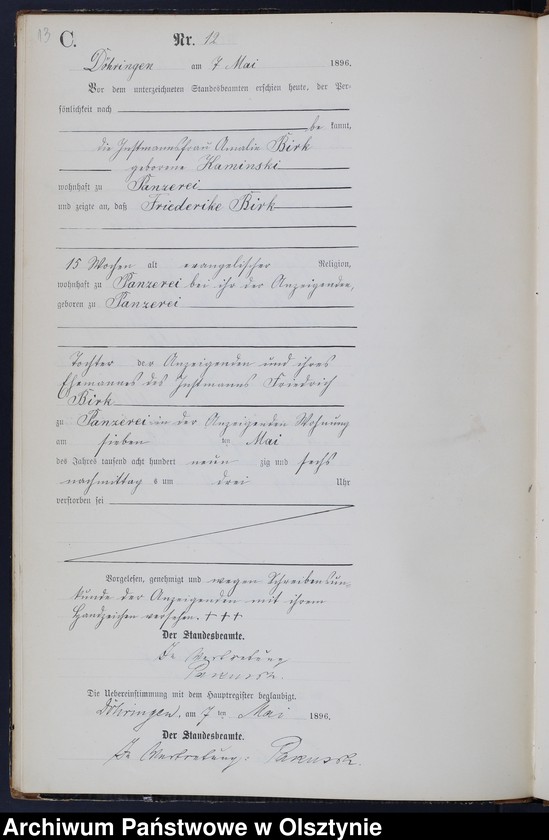 13
C.
Nr. 12
Döhringen am 7 Mai 1896.
Vor dem unterzeichneten Standesbeamten erschien heute, der Per-
sönlichkeit nach
be kannt,
die Instmannsfrau Amalie Birk
geborene Kaminski
wohnhaft zu Panzerei
und zeigte an, daß Friederike Birk
15 Wochen alt evangelischer Religion,
wohnhaft zu Panzerei bei ihr der Anzeigenden,
geboren zu Panzerei
Tochter der Anzeigenden und ihres
Ehemannes des Instmanns Friedrich
Birk
zu Panzerei in der Anzeigenden Wohnung
am sieben ten Mai
des Jahres tausend acht hundert neun zig und sechs
nachmittag s um drei Uhr
verstorben sei
Vorgelesen, genehmigt und wegen Schreibensun-
kunde der Anzeigenden mit ihrem
Handzeichen versehen. +++
Der Standesbeamte.
In Vertretung
Die Uebereinstimmung mit dem Hauptregister beglaubigt.
Döhringen, am 7 ten Mai 1896.
Der Standesbeamte.
In Vertretung:
Archiwum Państwowe w Olsztynie